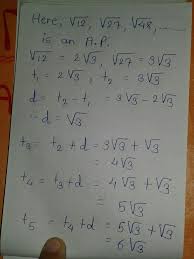 Here, √12, √27, √48, ......
is an A.P.
√12 = 2√3, √27 = 3√3
t₁ = 2√3, t₂ = 3√3
d = t₂ - t₁ = 3√3 - 2√3
∴ d = √3
t₃ = t₂ + d = 3√3 + √3
= 4√3
t₄ = t₃ + d = 4√3 + √3
= 5√3
t₅ = t₄ + d = 5√3 + √3
= 6√3